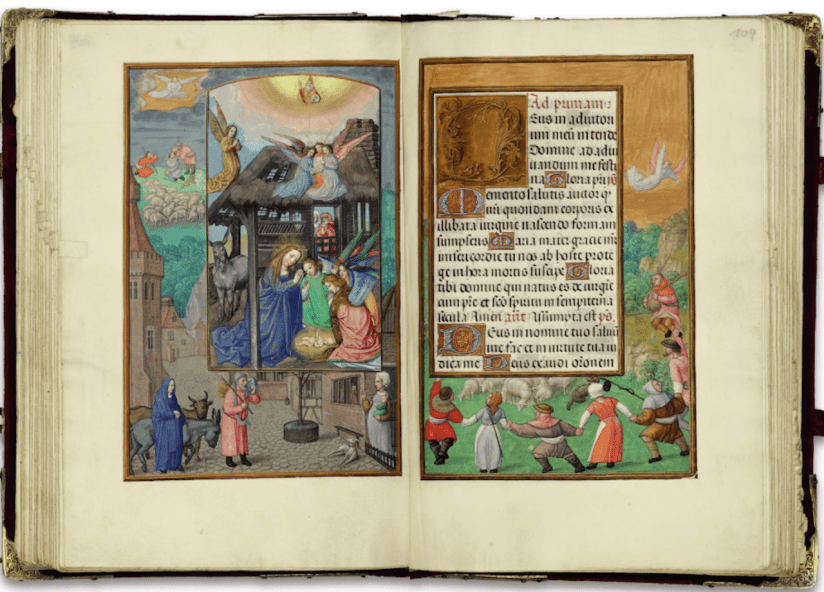 109
Ad primam
Deus in adiutori
um meu intende
Domine ad adiu
uandum me festi
na Gloria pri ps
Memento salutis auctor q
nri quondam corporis ex
illibata uirgine nascendo formam
sumpseris Maria mater gracie mr
misericordie tu nos ab hoste prote
ge in hora mortis suscipe Gloria
tibi domine qui natus es de uirgie
cum pre et sco spiritu in sempiterna
secula Amen ant Assumpta est ps
Deus in nomine tuo saluu
me fac et in uirtute tua iu
dica me Deus exaudi oronem